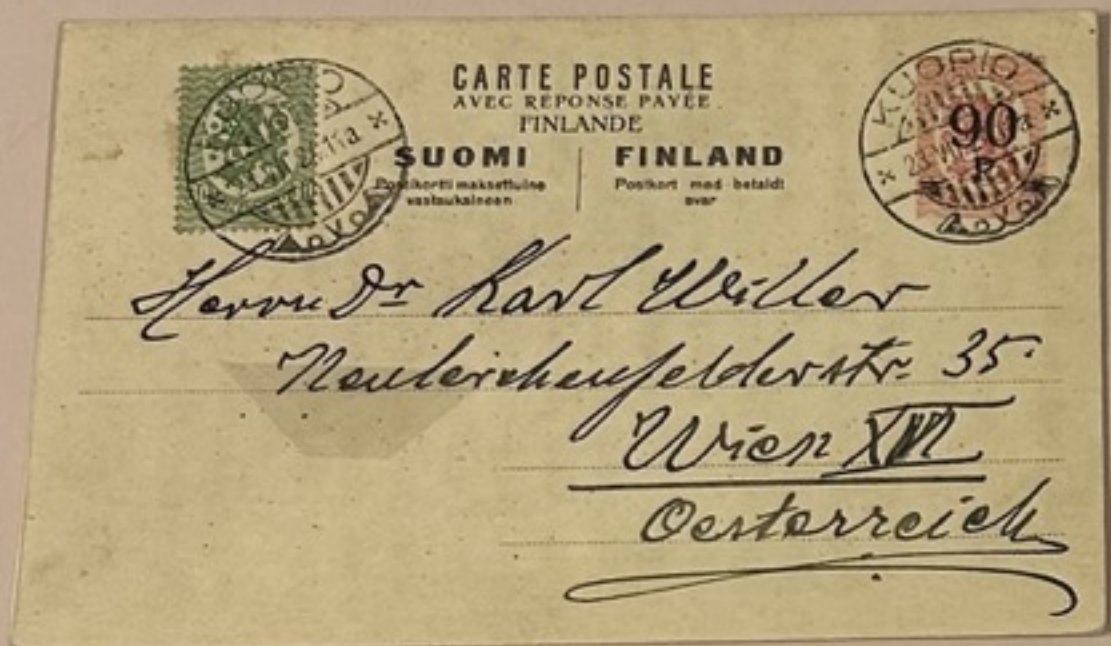 CARTE POSTALE
AVEC RÉPONSE PAYÉE
FINLANDE
SUOMI FINLAND
Postikortti maksettuine vastauksineen
Postkort med betaldt svar
KUOPIO
KUOPIO
90
Herrn Dr Karl Willer
Neulerchenfelderstr. 35
Wien XVI
Oesterreich